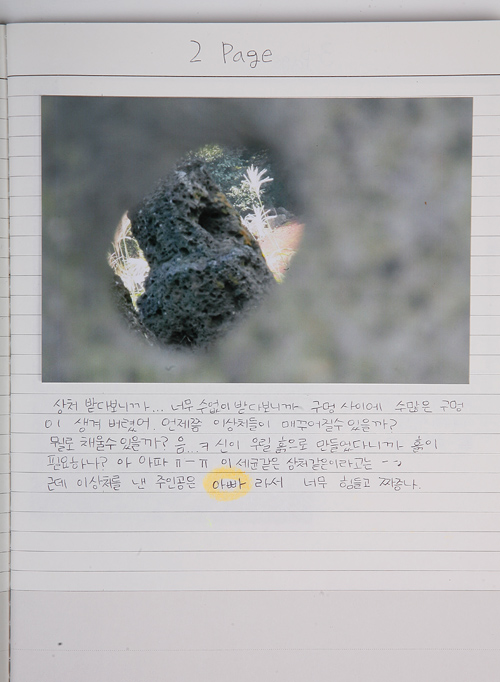 2 Page
상처 받다보니까... 너무 수없이 받다보니까 구멍 사이에 수많은 구멍
이 생겨 버렸어. 언제쯤 이상처들이 메꾸어질수 있을까?
뭘로 채울수 있을까? 음...ㅋ 신이 우릴 흙으로 만들었다니까 흙이
필요하나? 아 아파 ㅠ-ㅠ 이 세균같은 상처같은이라고는 --
근데 이상처를 낸 주인공은 아빠 라서 너무 힘들고 짜증나.